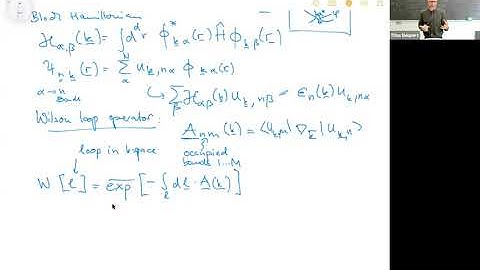 Bloch Hamiltonian
ℋ_{α,β}(k) = ∫ d^d r φ*_{kα}(r) Ĥ φ_{kβ}(r)
Ψ_{n,k}(r) = Σ_α^N u_{k,nα} φ_{kα}(r)
α→n
bands
↳ Σ_β ℋ_{αβ}(k) u_{k,nβ} = ε_n(k) u_{k,nα}
Wilson loop operator:
A_{nm}(k) = ⟨u_{k,m}| ∇_k |u_{k,n}⟩
occupied
bands 1...M
loop in k-space
W[ℓ] = exp [ - ∫_ℓ dℓ · A(k) ]